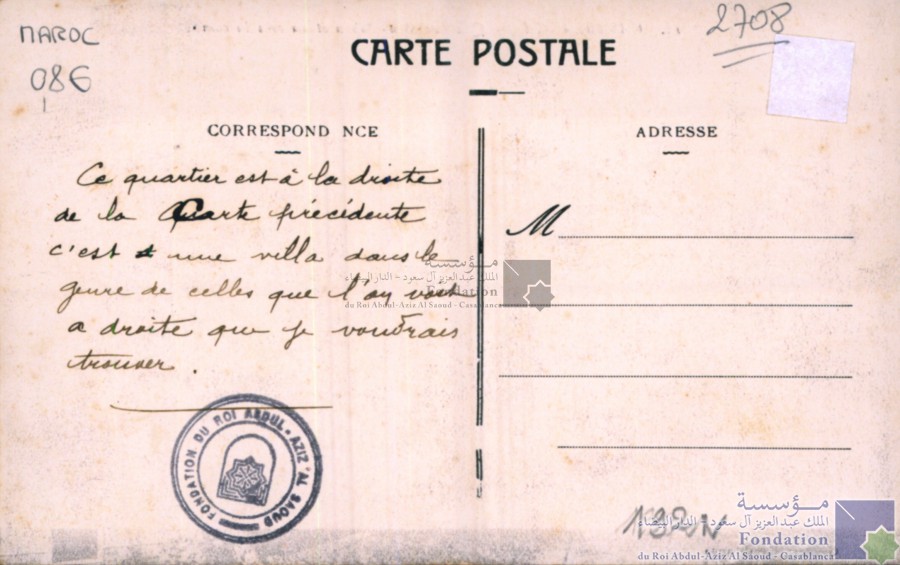 MAROC
086
2708
CARTE POSTALE
CORRESPOND NCE
ADRESSE
Ce quartier est à la droite
de la Carte précédente
c'est une villa dans le
genre de celles que l'on voit
a droite que je voudrais
trouver.
M
مؤسسة
الملك عبد العزيز آل سعود - الدار البيضاء
Fondation
du Roi Abdul-Aziz Al Saoud - Casablanca
FONDATION DU ROI ABDUL-AZIZ AL SAOUD
مؤسسة
الملك عبد العزيز آل سعود - الدار البيضاء
Fondation
du Roi Abdul-Aziz Al Saoud - Casablanca